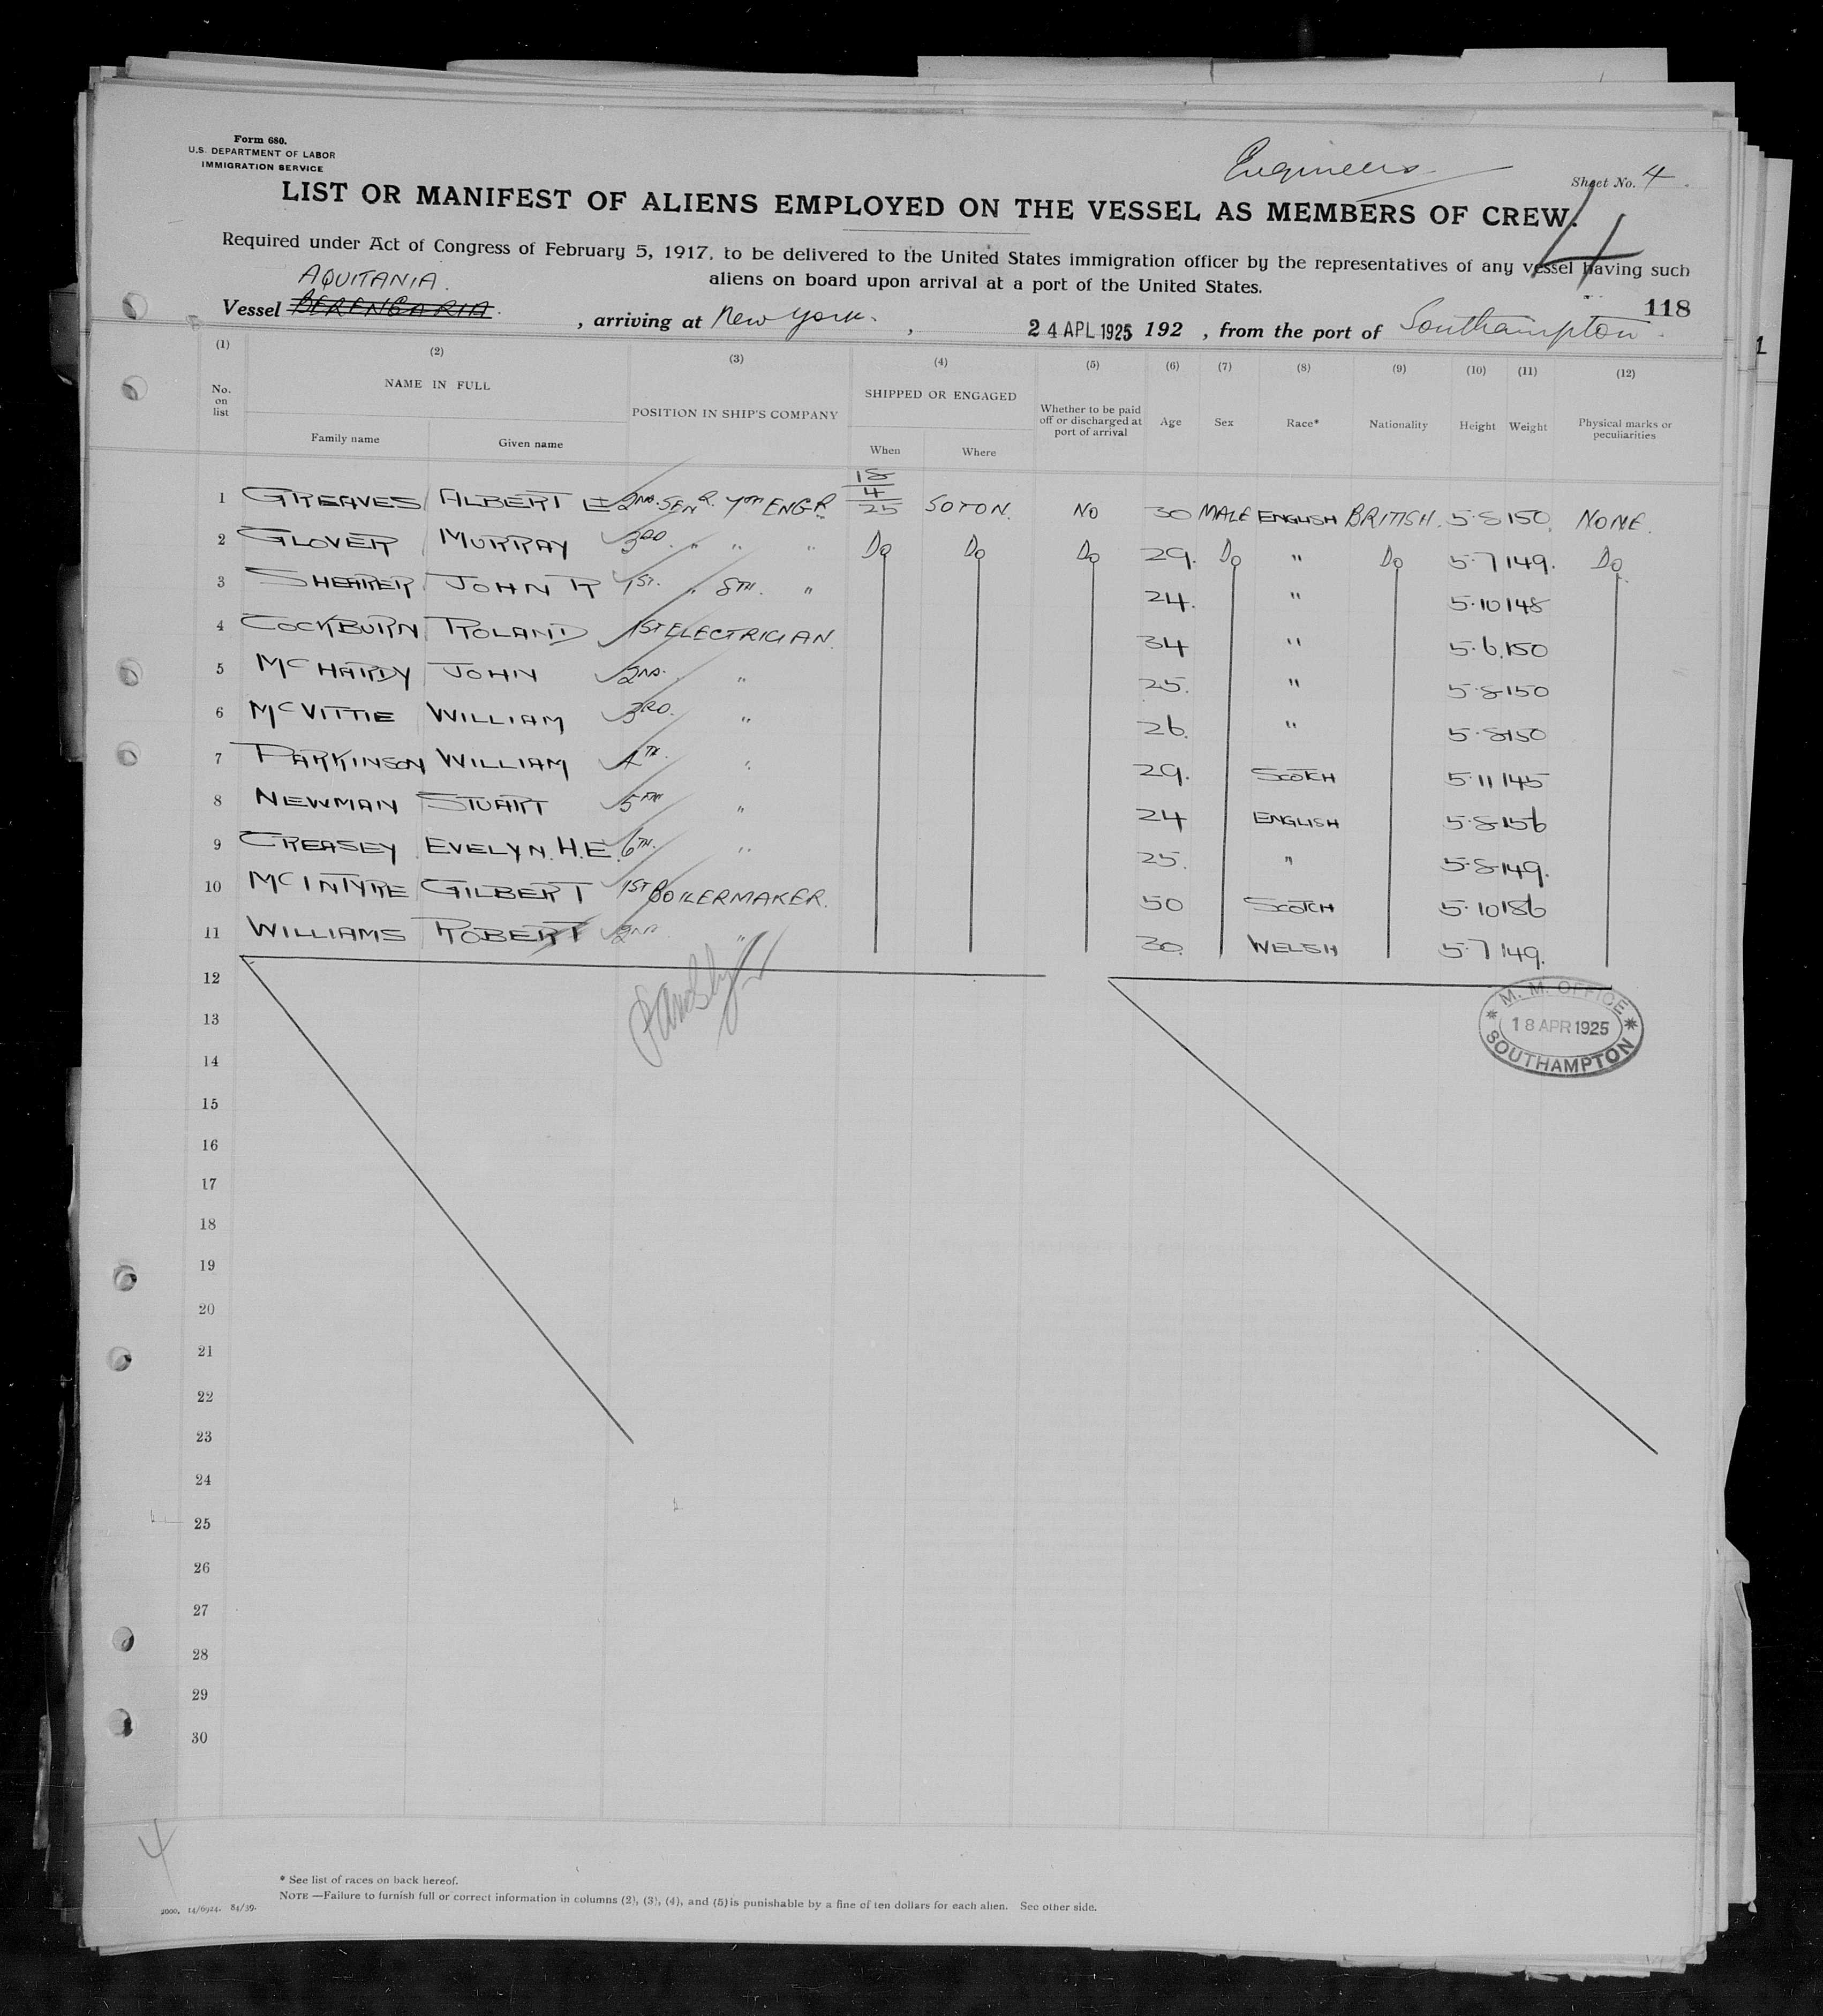 Form 680.
U.S. DEPARTMENT OF LABOR
IMMIGRATION SERVICE
Engineers
Sheet No. 4.
LIST OR MANIFEST OF ALIENS EMPLOYED ON THE VESSEL AS MEMBERS OF CREW.
4
Required under Act of Congress of February 5, 1917, to be delivered to the United States immigration officer by the representatives of any vessel having such
aliens on board upon arrival at a port of the United States.
AQUITANIA.
118
Vessel BERENGARIA. , arriving at New York. , 24 APL 1925 192 , from the port of Southampton.
(1) (2) (3) (4) (5) (6) (7) (8) (9) (10) (11) (12)
No. on list
NAME IN FULL
Family name Given name
POSITION IN SHIP'S COMPANY
SHIPPED OR ENGAGED
When Where
Whether to be paid off or discharged at port of arrival
Age Sex Race* Nationality Height Weight
Physical marks or peculiarities
1 GREAVES ALBERT E 2ND. SENR. 7TH ENGR. 18/4/25 SOTON. NO 30 MALE ENGLISH BRITISH. 5.8 150. NONE.
2 GLOVER MURRAY 3RD. " " " Do Do Do 29. Do " Do 5.7 149. Do
3 SHEARER JOHN R 1ST. " 8TH. " 24. " 5.10 148
4 COCKBURN ROLAND 1ST ELECTRICIAN. 34 " 5.6. 150
5 MCHARDY JOHN 2ND. " 25. " 5.8 150
6 MCVITTIE WILLIAM 3RD. " 26. " 5.8 150
7 PARKINSON WILLIAM 4TH. " 29. SCOTCH 5.11 145
8 NEWMAN STUART 5TH " 24 ENGLISH 5.8 156
9 CREASEY EVELYN. H.E. 6TH. " 25. " 5.8 149.
10 MCINTYRE GILBERT 1ST BOILERMAKER. 50 SCOTCH 5.10 186
11 WILLIAMS ROBERT 2ND " 30. WELSH 5.7 149.
12
M. M. OFFICE
18 APR 1925
SOUTHAMPTON
13
14
15
16
17
18
19
20
21
22
23
24
25
26
27
28
29
30
4
* See list of races on back hereof.
NOTE —Failure to furnish full or correct information in columns (2), (3), (4), and (5) is punishable by a fine of ten dollars for each alien. See other side.
2000. 14/6924. 84/39.